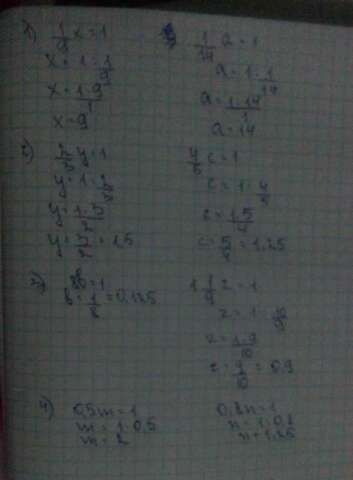 1) 1/9 x = 1
x = 1 : 1/9
x = 1·9/1
x = 9
1/14 a = 1
a = 1 : 1/14
a = 1·14/1
a = 14
2) 2/5 y = 1
y = 1 : 2/5
y = 1·5/2
y = 5/2 = 1,5
4/5 c = 1
c = 1 : 4/5
c = 1·5/4
c = 5/4 = 1,25
3) 8b = 1
b = 1/8 = 0,125
1 1/9 z = 1
z = 1 : 10/9
z = 1·9/10
z = 9/10 = 0,9
4) 0,5m = 1
m = 1 : 0,5
m = 2
0,8n = 1
n = 1 : 0,8
n = 1,25